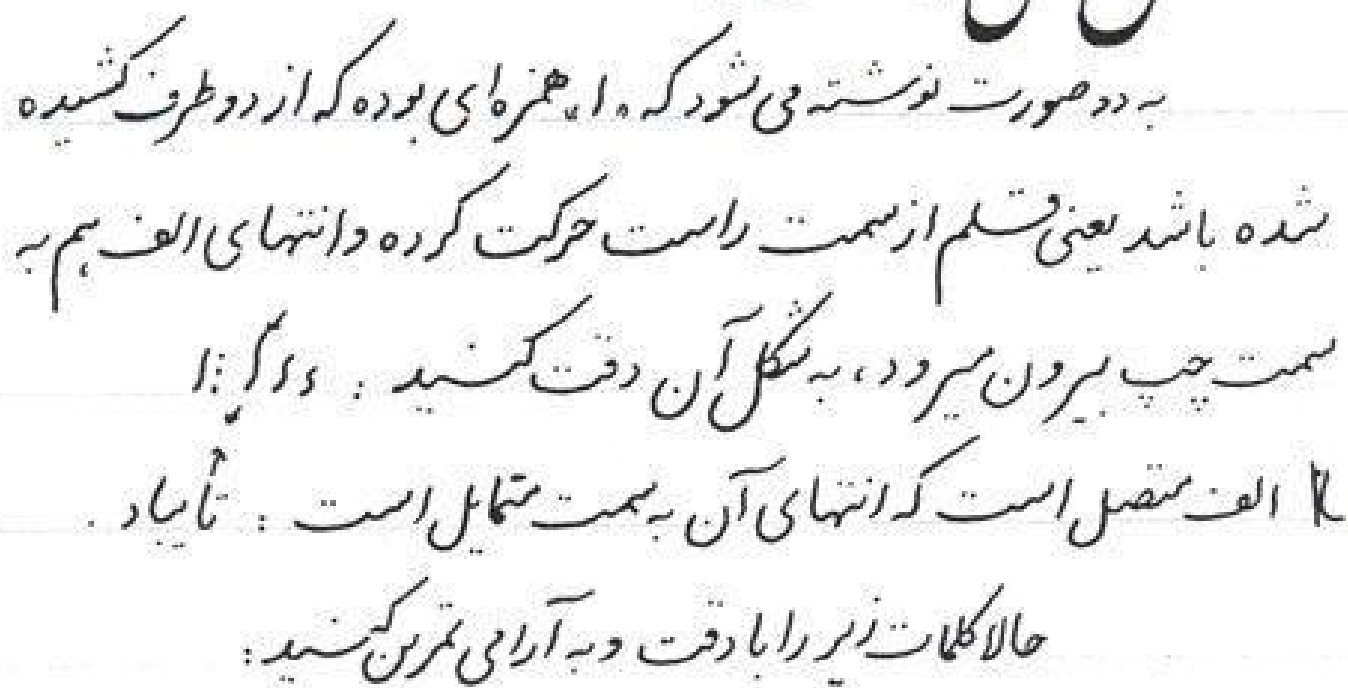 به دو صورت نوشته می شود که «ا» همزه ای بوده که از دو طرف کشیده
شده باشد یعنی قلم از سمت راست حرکت کرده و انتهای الف هم به
سمت چپ بیرون میرود، به شکل آن دقت کنید :
الف متصل است که انتهای آن به سمت متمایل است : تایباد .
حالا کلمات زیر را با دقت و به آرامی تمرین کنید :